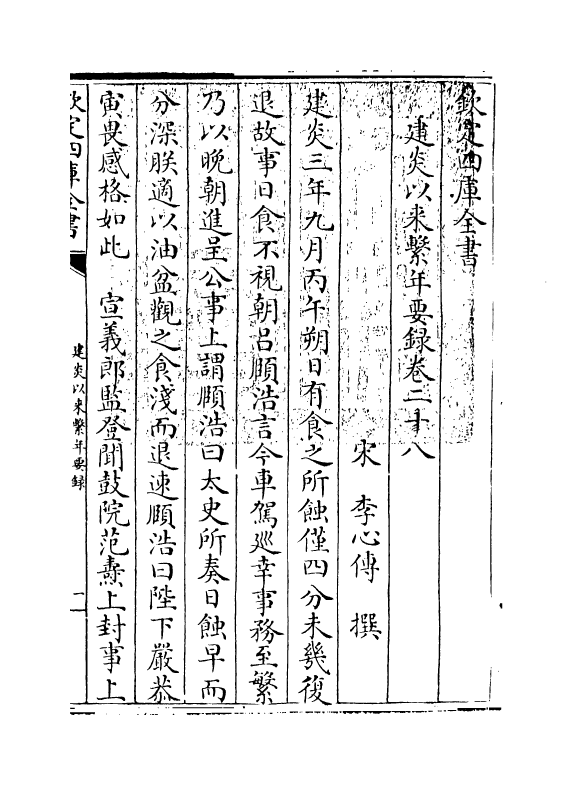 欽定四庫全書
建炎以来繫年要録卷二十八
宋 李心傳 撰
建炎三年九月丙午朔日有食之所蝕僅四分未幾復
退故事日食不視朝吕頤浩言今車駕巡幸事務至繁
乃以晚朝進呈公事上謂頤浩曰太史所奏日蝕早而
分深朕適以油盆觀之食淺而退速頤浩曰陛下嚴恭
寅畏感格如此 宣義郎監登聞鼓院范燾上封事上
欽定四庫全書
建炎以来繫年要録